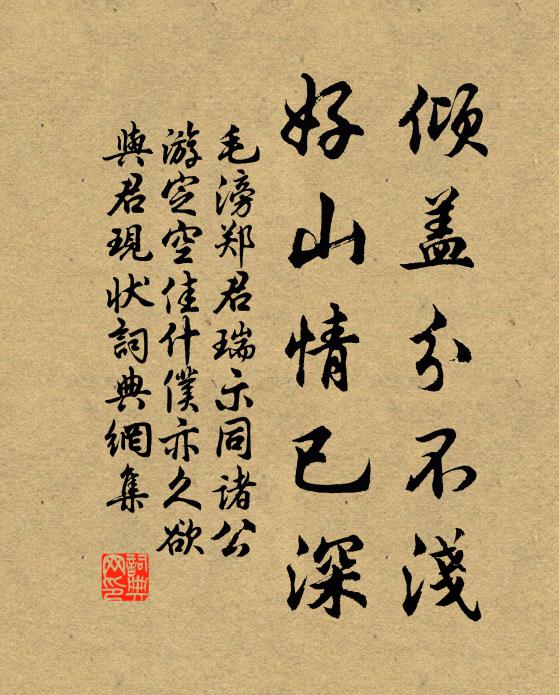 倾盖分不浅
好山情已深
毛滂郑君瑞示同诸公
游定空佳什仆亦久欲
與君現状詞典網集
詞典
网印